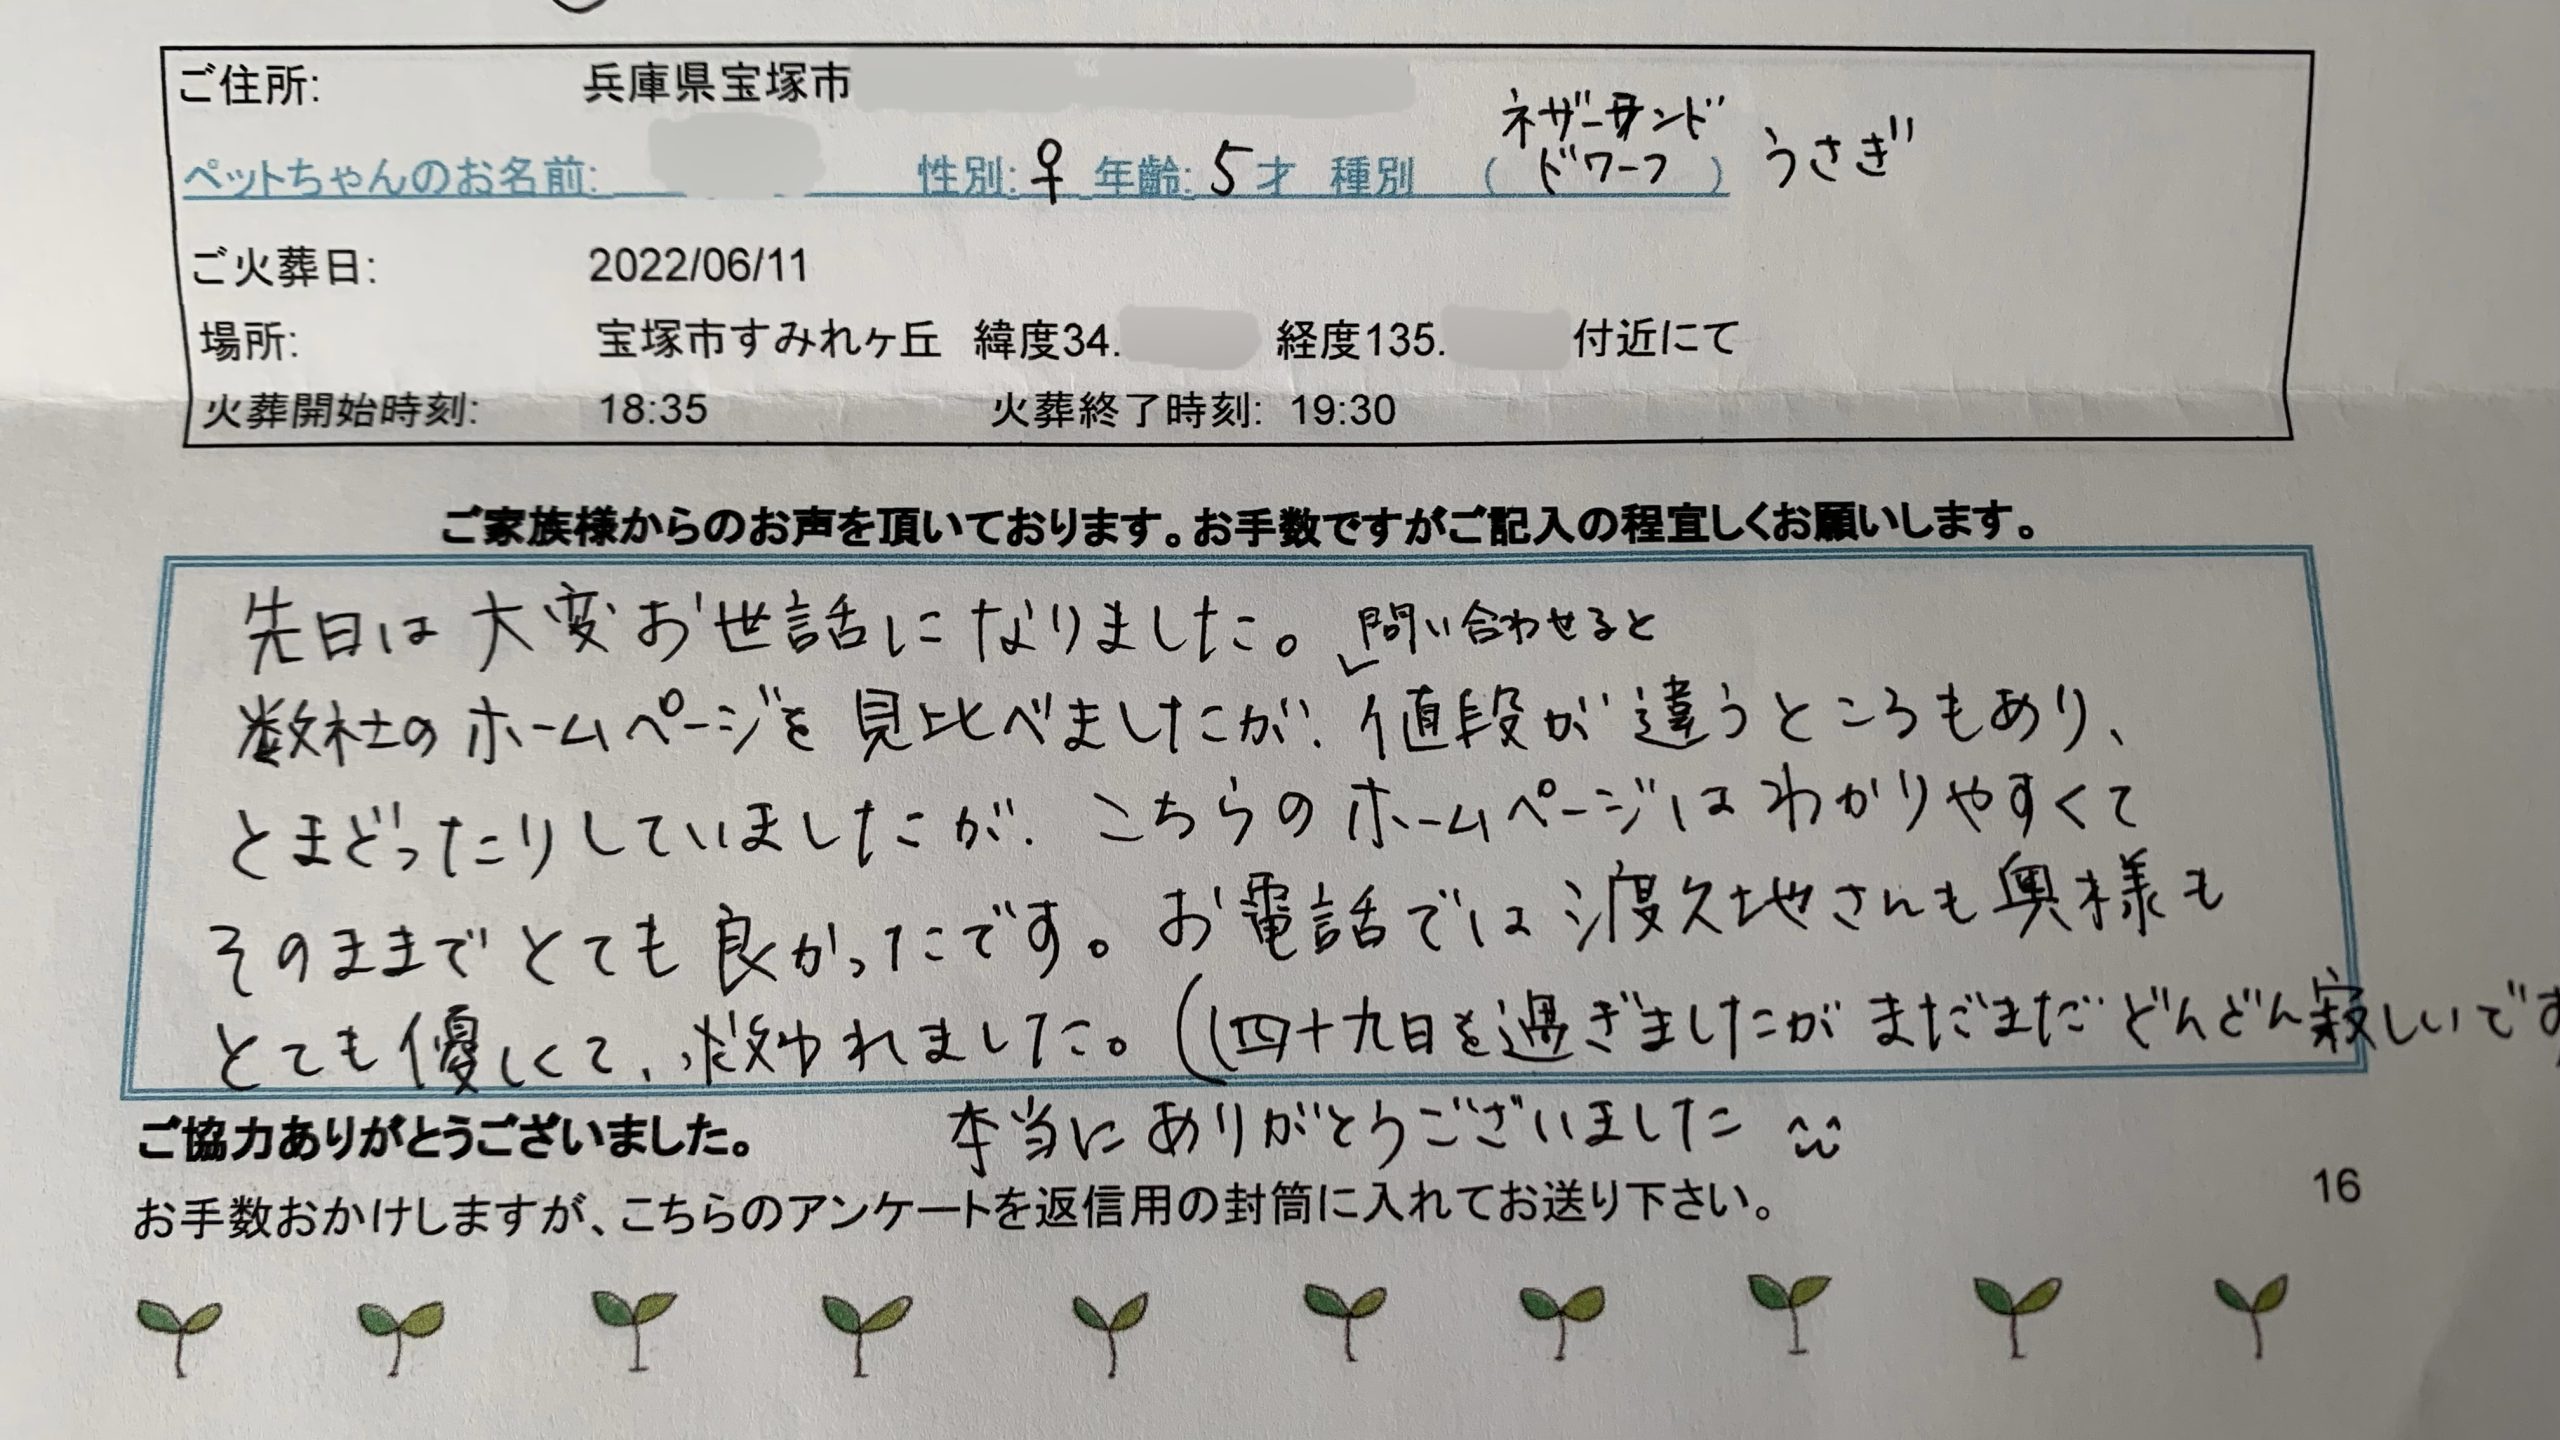 ご住所: 兵庫県宝塚市
ネザーサンド
ペットちゃんのお名前: 性別: ♀ 年齢: 5才 種別 ( ドワーフ ) うさぎ
ご火葬日: 2022/06/11
場所: 宝塚市すみれヶ丘 緯度34. 経度135. 付近にて
火葬開始時刻: 18:35 火葬終了時刻: 19:30
ご家族様からのお声を頂いております。お手数ですがご記入の程宜しくお願いします。
先日は大変お世話になりました。 問い合わせると
数社のホームページを見比べましたが、値段が違うところもあり、
とまどったりしていましたが、こちらのホームページはわかりやすくて
そのままでとても良かったです。お電話では渡久地さんも奥様も
とても優しくて、救われました。(四十九日を過ぎましたがまだまだどんどん寂しいです
本当にありがとうございました
ご協力ありがとうございました。
お手数おかけしますが、こちらのアンケートを返信用の封筒に入れてお送り下さい。
16